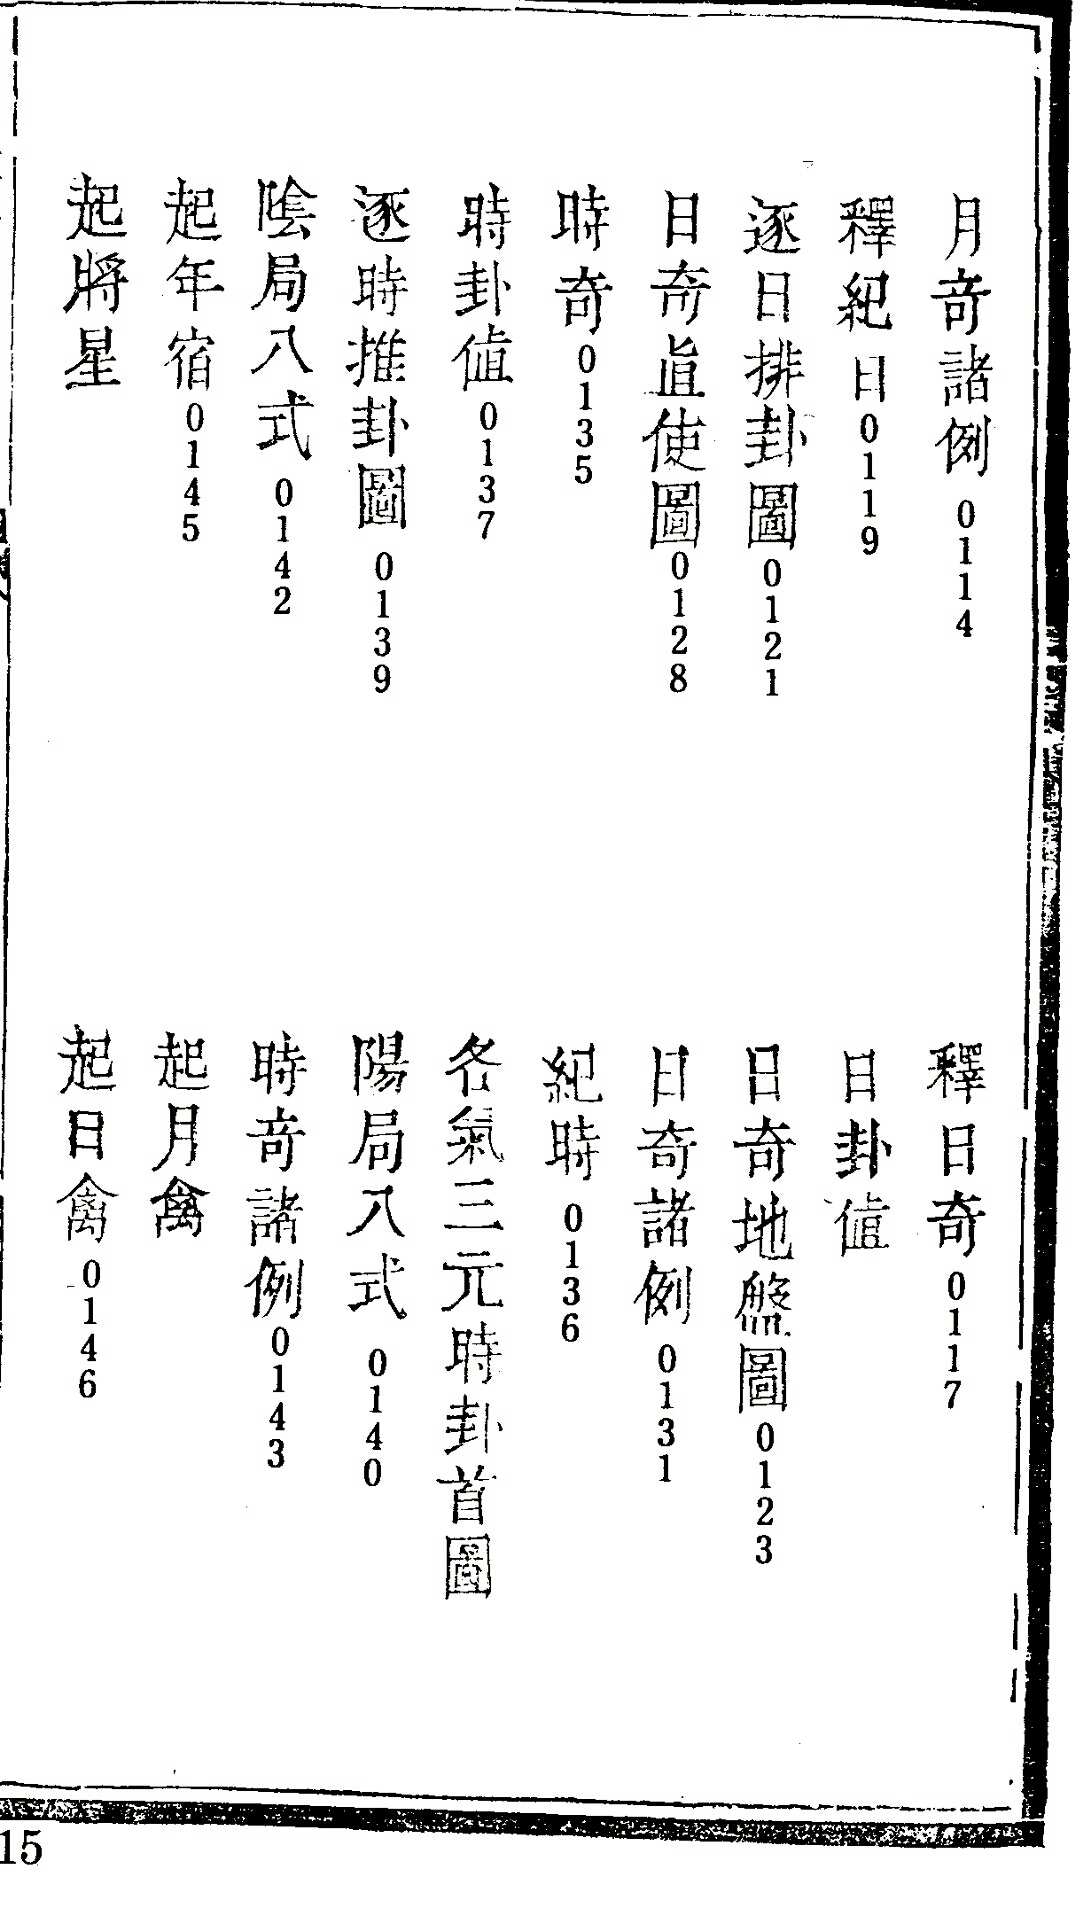 月奇諸例 0114
釋日奇 0117
釋紀日 0119
日卦值
逐日排卦圖 0121
日奇地盤圖 0123
日奇直使圖 0128
日奇諸例 0131
時奇 0135
紀時 0136
時卦值 0137
各氣三元時卦首圖
逐時推卦圖 0139
陽局八式 0140
陰局八式 0142
時奇諸例 0143
起年宿 0145
起月禽
起將星
起日禽 0146
15